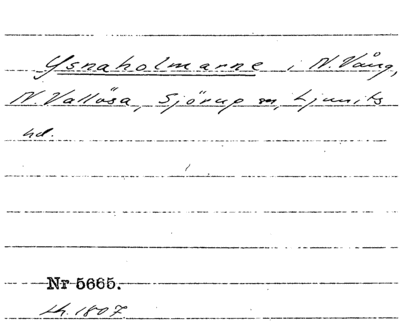 Ysnaholmarne i N. Vång,
N. Vallösa, Sjörup sn, Ljunits
hd.
Nr 5665.
Lh. 1807